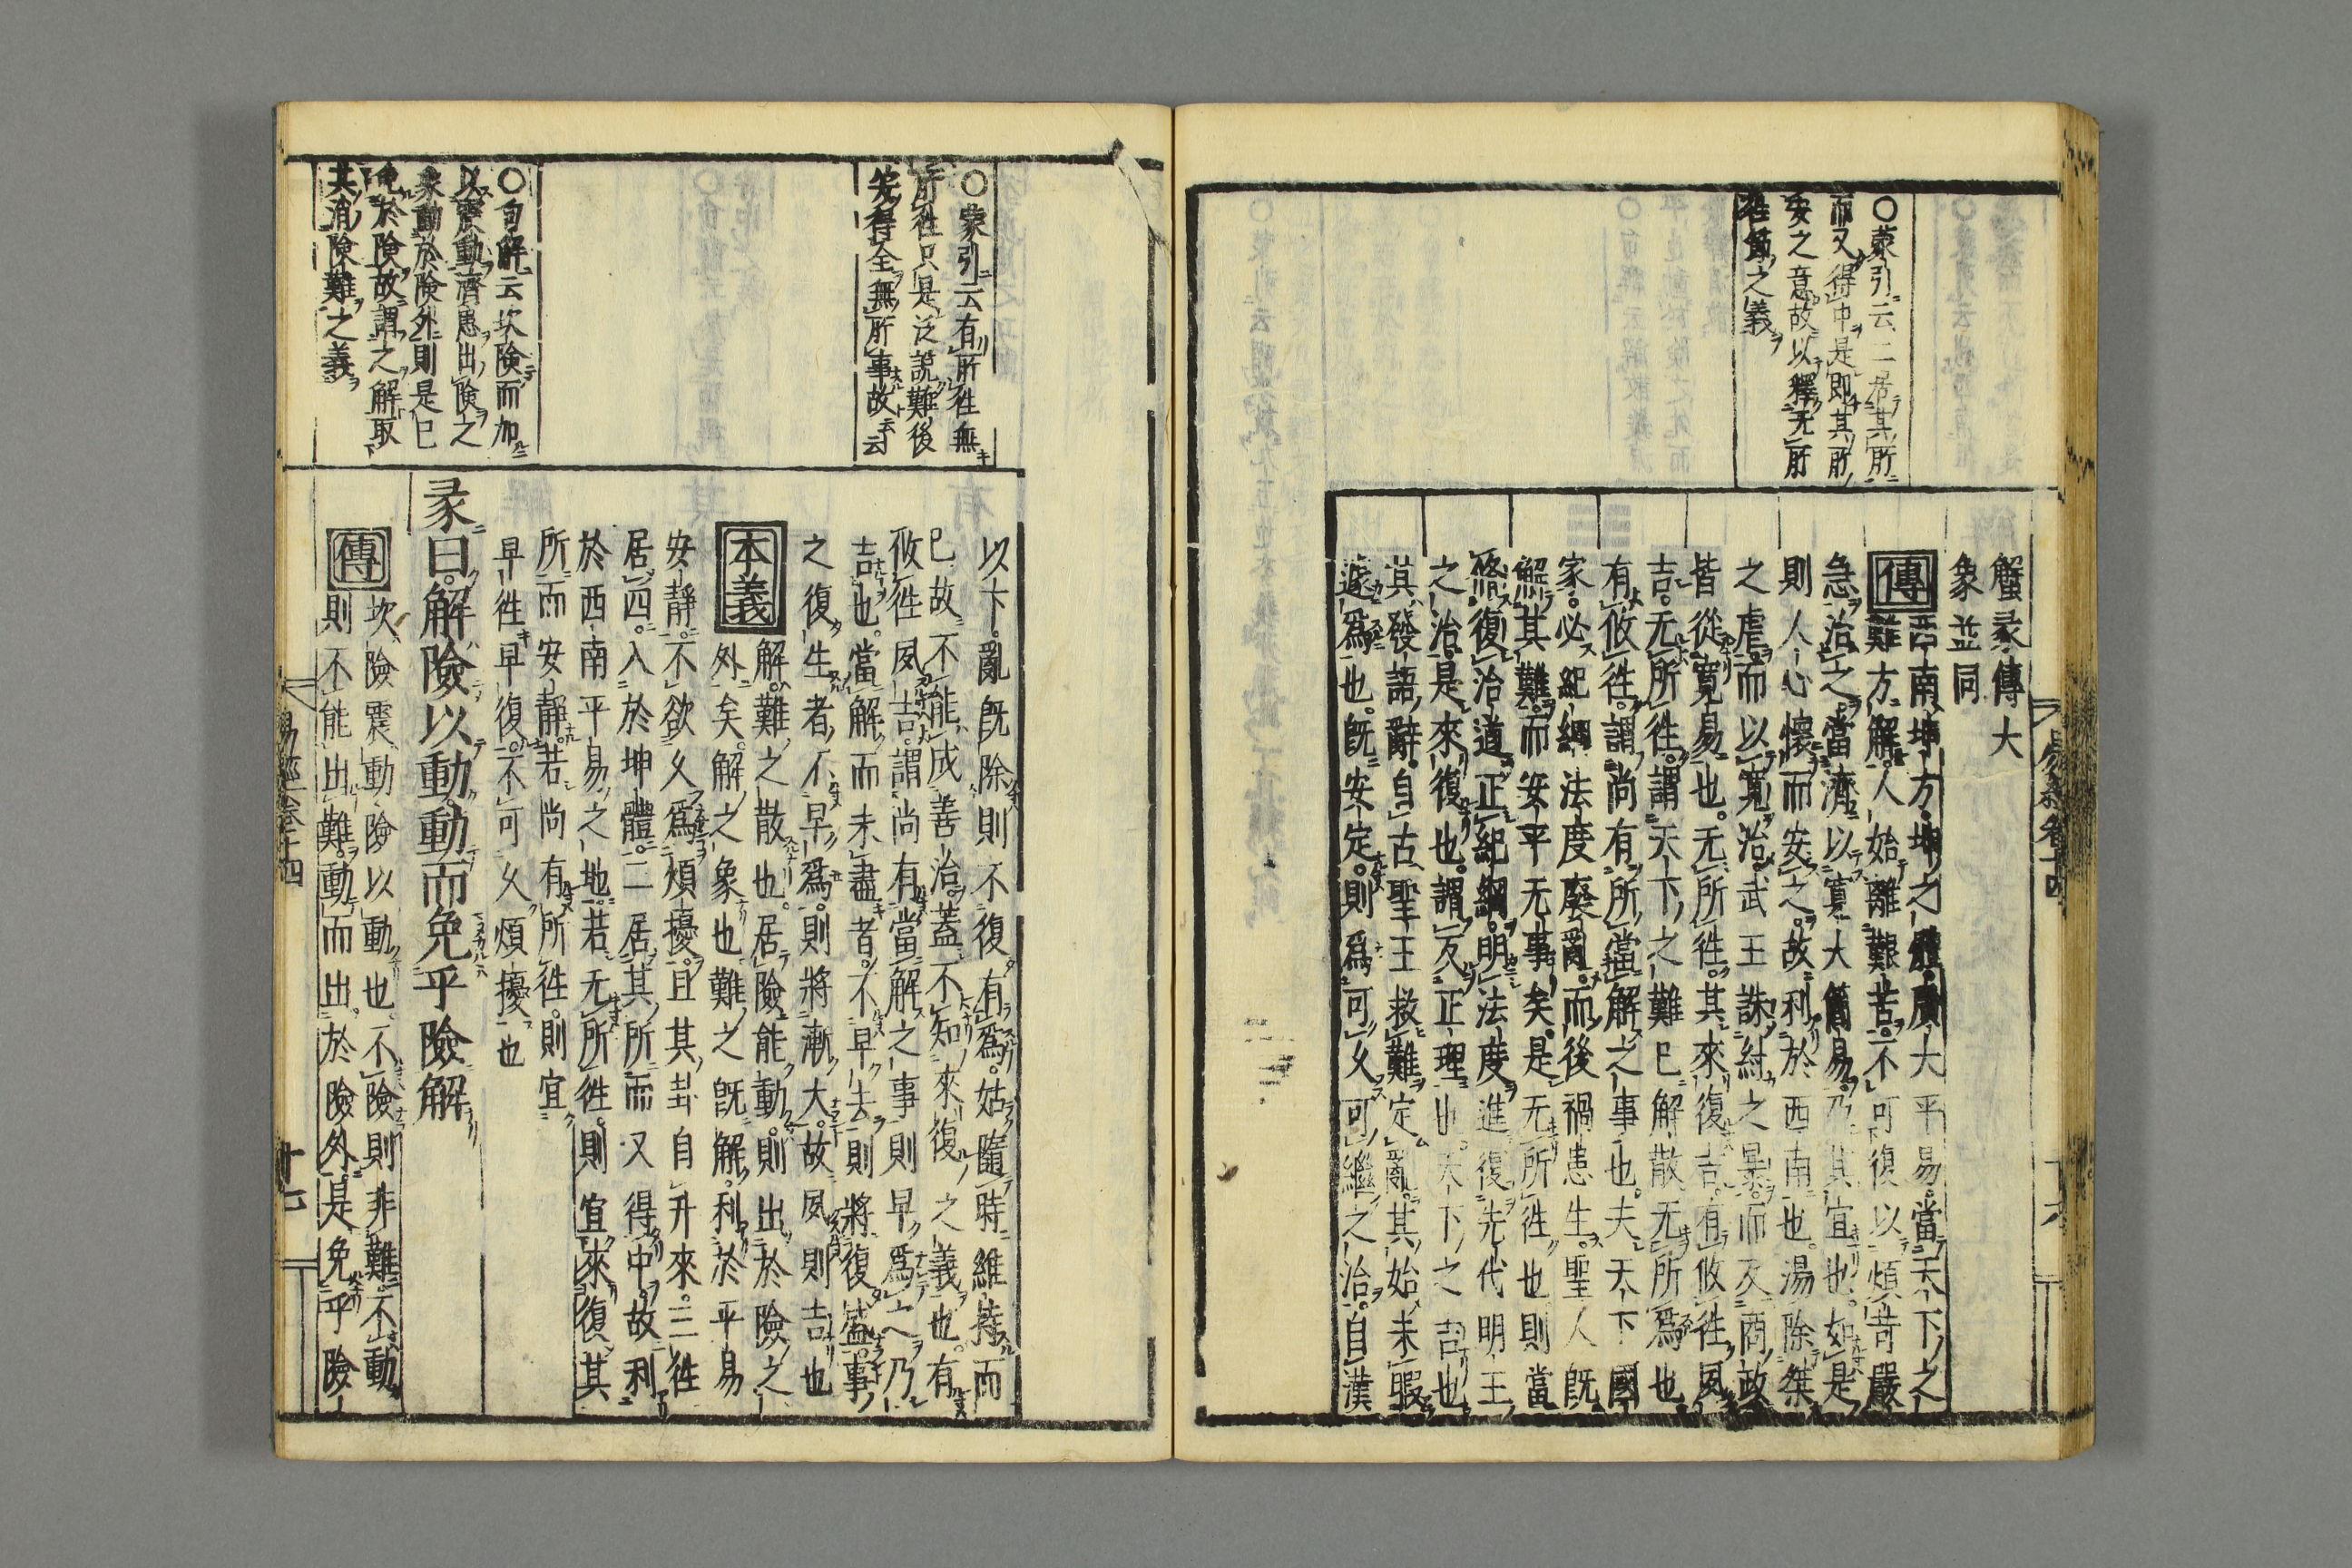 ○蒙引云二居其所
而又得中是即其所
安之意故以釋无所
徃節之義
蟹彖傳大
象並同
傳西南坤方坤之體廣大平易當天下之
難方解人始離艱苦不可復以煩苛嚴
急治之當濟以寬大簡易乃其宜也如是
則人心懷而安之故利於西南也湯除桀
之虐而以寬治武王誅紂之暴而反商政
皆從寬易也无所徃其來復吉有攸徃夙
吉无所徃謂天下之難已解散无所爲也
有攸徃謂尚有所當解之事也夫天下國
家必紀綱法度廢亂而後禍患生聖人既
解其難而安平无事矣是无所徃也則當
脩復治道正紀綱明法度進復先代明王
之治是來復也謂反正理也天下之吉也
其發語辭自古聖王救難定亂其始未暇
遽爲也既安定則爲可久可繼之治自漢
○蒙引云有所徃無
所徃只是泛說難後
安得全無所事故云云
○句解云坎險而加
以震動濟患出險之
象動於險外則是已
免於險故謂之解取
其消險難之義
以下亂既除則不復有爲姑隨時維持而
已故不能成善治蓋不知來復之義也有
攸徃夙吉謂尚有當解之事則早爲之乃
吉也當解而未盡者不早去則將復盛事
之復生者不早爲則將漸大故夙則吉也
本義解難之散也居險能動則出於險之
外矣解之象也難之既解利於平易
安靜不欲久爲煩擾且其卦自升來三徃
居四入於坤體二居其所而又得中故利
於西南平易之地若无所徃則宜來復其
所而安靜若尚有所徃則宜
早徃早復不可久煩擾也
彖曰解險以動動而免乎險解
傳坎險震動險以動也不險則非難不動
則不能出難動而出於險外是免乎險
易經卷十四
十七